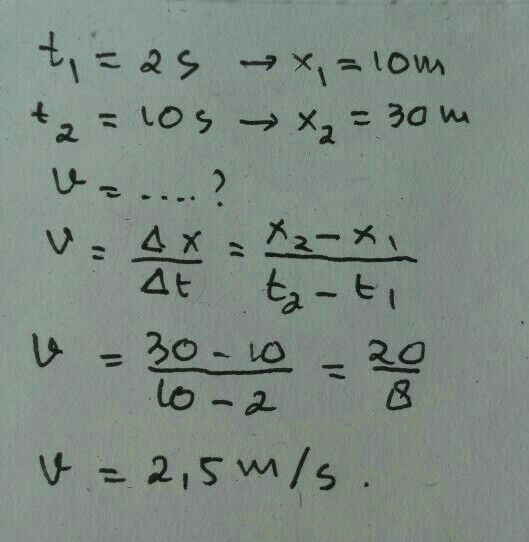 t₁ = 2 s → x₁ = 10 m
t₂ = 10 s → x₂ = 30 m
v = ....?
v = Δx/Δt = (x₂ - x₁)/(t₂ - t₁)
v = (30 - 10)/(10 - 2) = 20/8
v = 2,5 m/s.